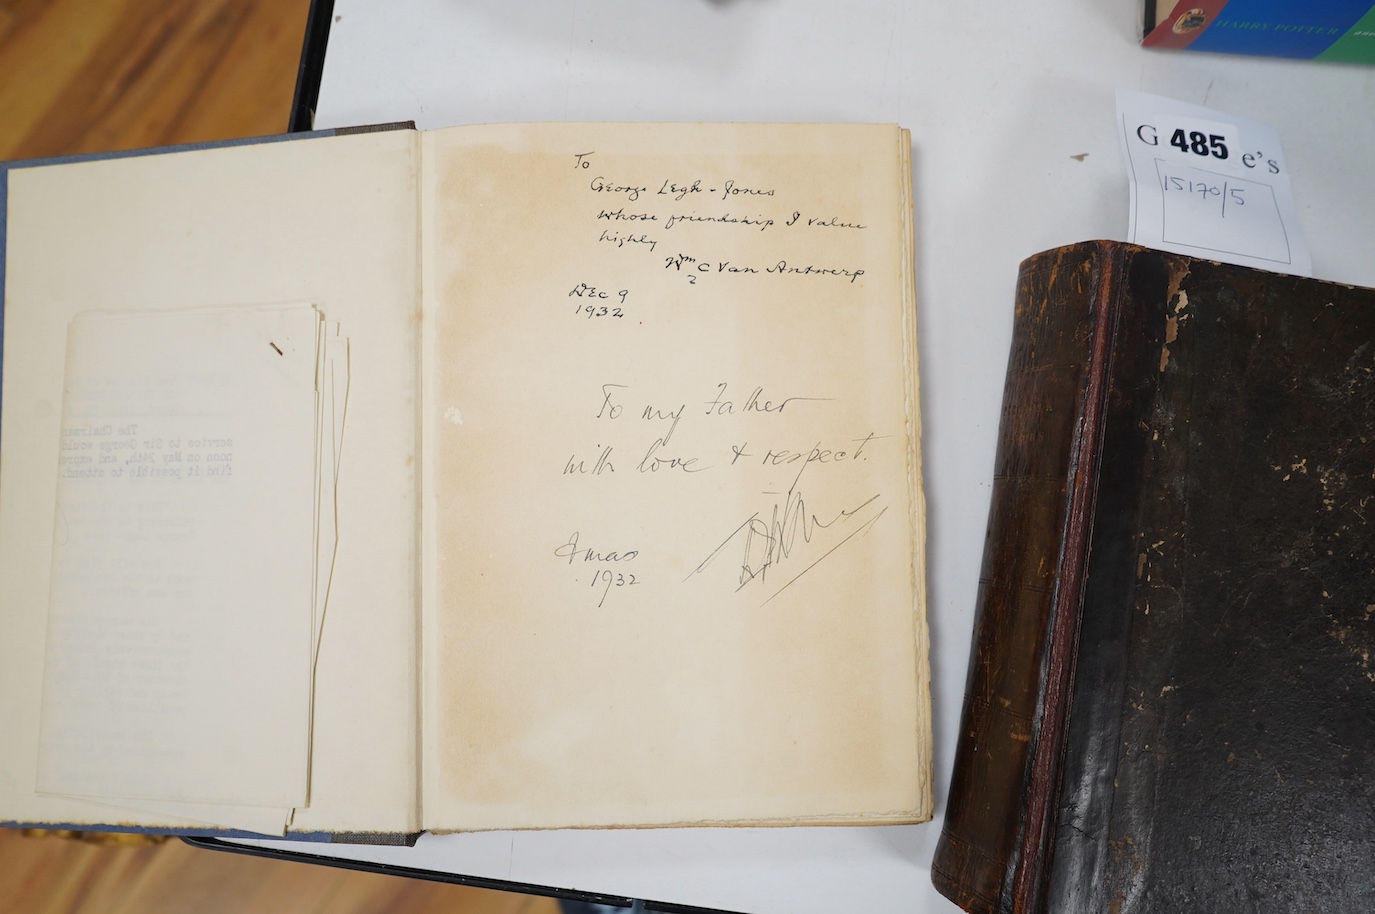 To
George Legh-Jones
whose friendship I value
highly
Wm C Van Antwerp
Dec 9
1932
To my Father
with love & respect.
Xmas
1932
The Chairman
service to Sir George would
noon on May 24th, and
find it possible to attend.
HARRY POTTER
and
G 485 e's
15170/5